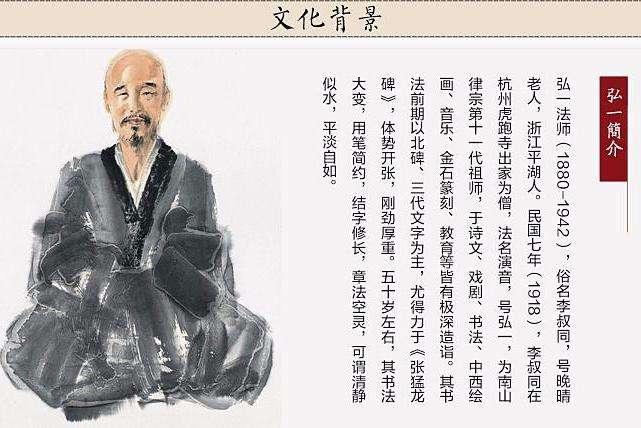 文化背景
弘一簡介
弘一法师（1880-1942），俗名李叔同，号晚晴
老人，浙江平湖人。民国七年（1918），李叔同在
杭州虎跑寺出家为僧，法名演音，号弘一，为南山
律宗第十一代祖师，于诗文、戏剧、书法、中西绘
画、音乐、金石篆刻、教育等皆有极深造诣。其书
法前期以北碑、三代文字为主，尤得力于《张猛龙
碑》，体势开张，刚劲厚重。五十岁左右，其书法
大变，用笔简约，结字修长，章法空灵，可谓清静
似水，平淡自如。